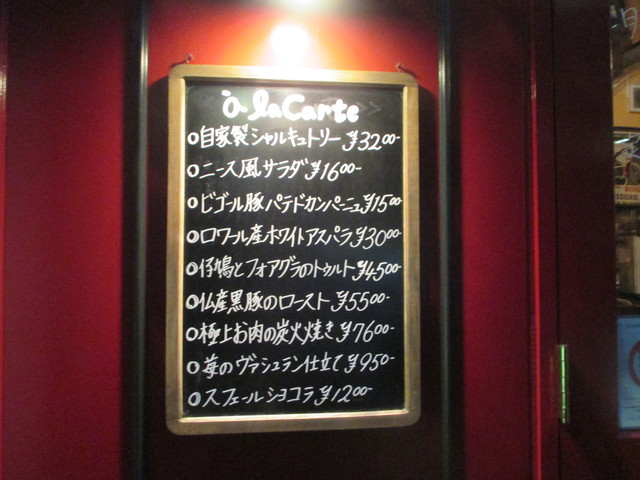 à la Carte
○自家製シャルキュトリー ¥3200-
○ニース風サラダ ¥1600-
○ビゴール豚パテドカンパーニュ ¥1500-
○ロワール産ホワイトアスパラ ¥3000-
○仔鳩とフォアグラのトゥルト ¥4500-
○仏産黒豚のロースト ¥5500-
○極上お肉の炭火焼き ¥7600-
○苺のヴァシュラン仕立て ¥950-
○スフェールショコラ ¥1200-